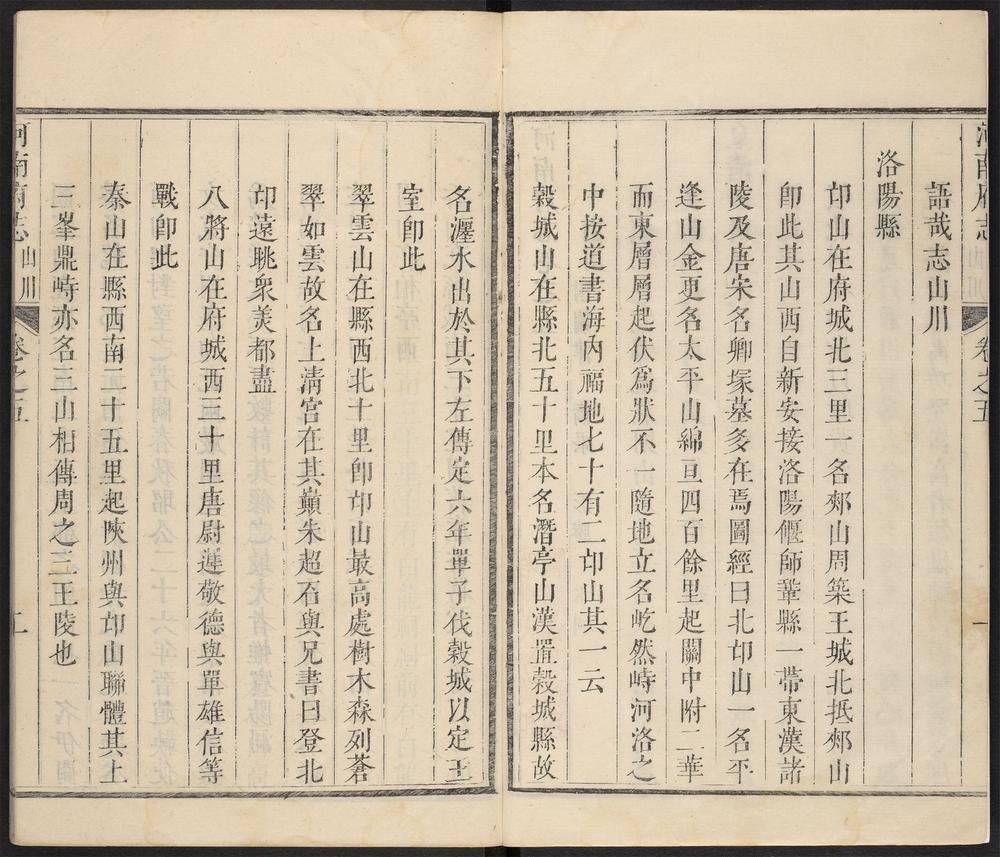 河南府志 山川 卷之五 一
語哉志山川
洛陽縣
邙山在府城北三里一名郟山周築王城北抵郟山
卽此其山西自新安接洛陽偃師鞏縣一帶東漢諸
陵及唐宋名卿塚墓多在焉圖經曰北邙山一名平
逢山金更名太平山綿亘四百餘里起關中附二華
而東層層起伏爲狀不一隨地立名屹然峙河洛之
中按道書海內福地七十有二邙山其一云
穀城山在縣北五十里本名潛亭山漢置穀城縣故
名瀍水出於其下左傳定六年單子伐穀城以定王
室卽此
翠雲山在縣西北十里卽邙山最高處樹木森列蒼
翠如雲故名上清宮在其巔朱超石與兄書曰登北
邙遠眺衆美都盡
八將山在府城西三十里唐尉遲敬德與單雄信等
戰卽此
秦山在縣西南二十五里起陝州與邙山聯體其上
三峯鼎峙亦名三山相傳周之三王陵也
河南府志 山川 卷之五